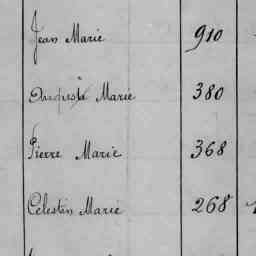 Jean Marie 910
Marie 380
Pierre Marie 368
Célestin Marie 268